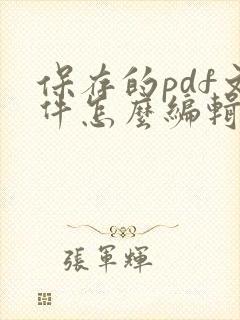 保存的pdf文
件怎麽編輯
張軍輝